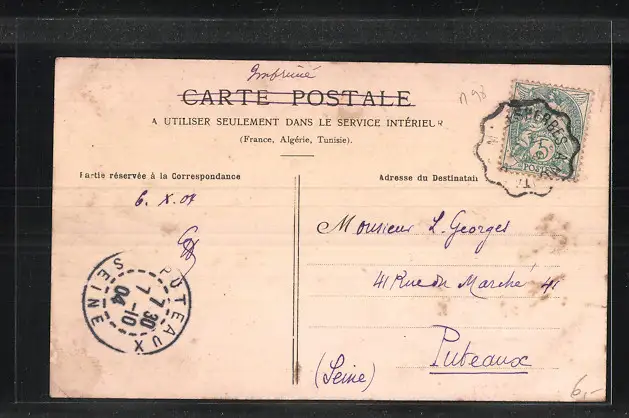 Imprimé
CARTE POSTALE
A UTILISER SEULEMENT DANS LE SERVICE INTÉRIEUR
(France, Algérie, Tunisie).
Partie réservée à la Correspondance
6. X. 04
Adresse du Destinatair
Monsieur L. Georges
41 Rue du Marché 41
Puteaux
(Seine)
PUTEAUX
7 30
7 - 10
04
SEINE
5c
POSTES
6,-